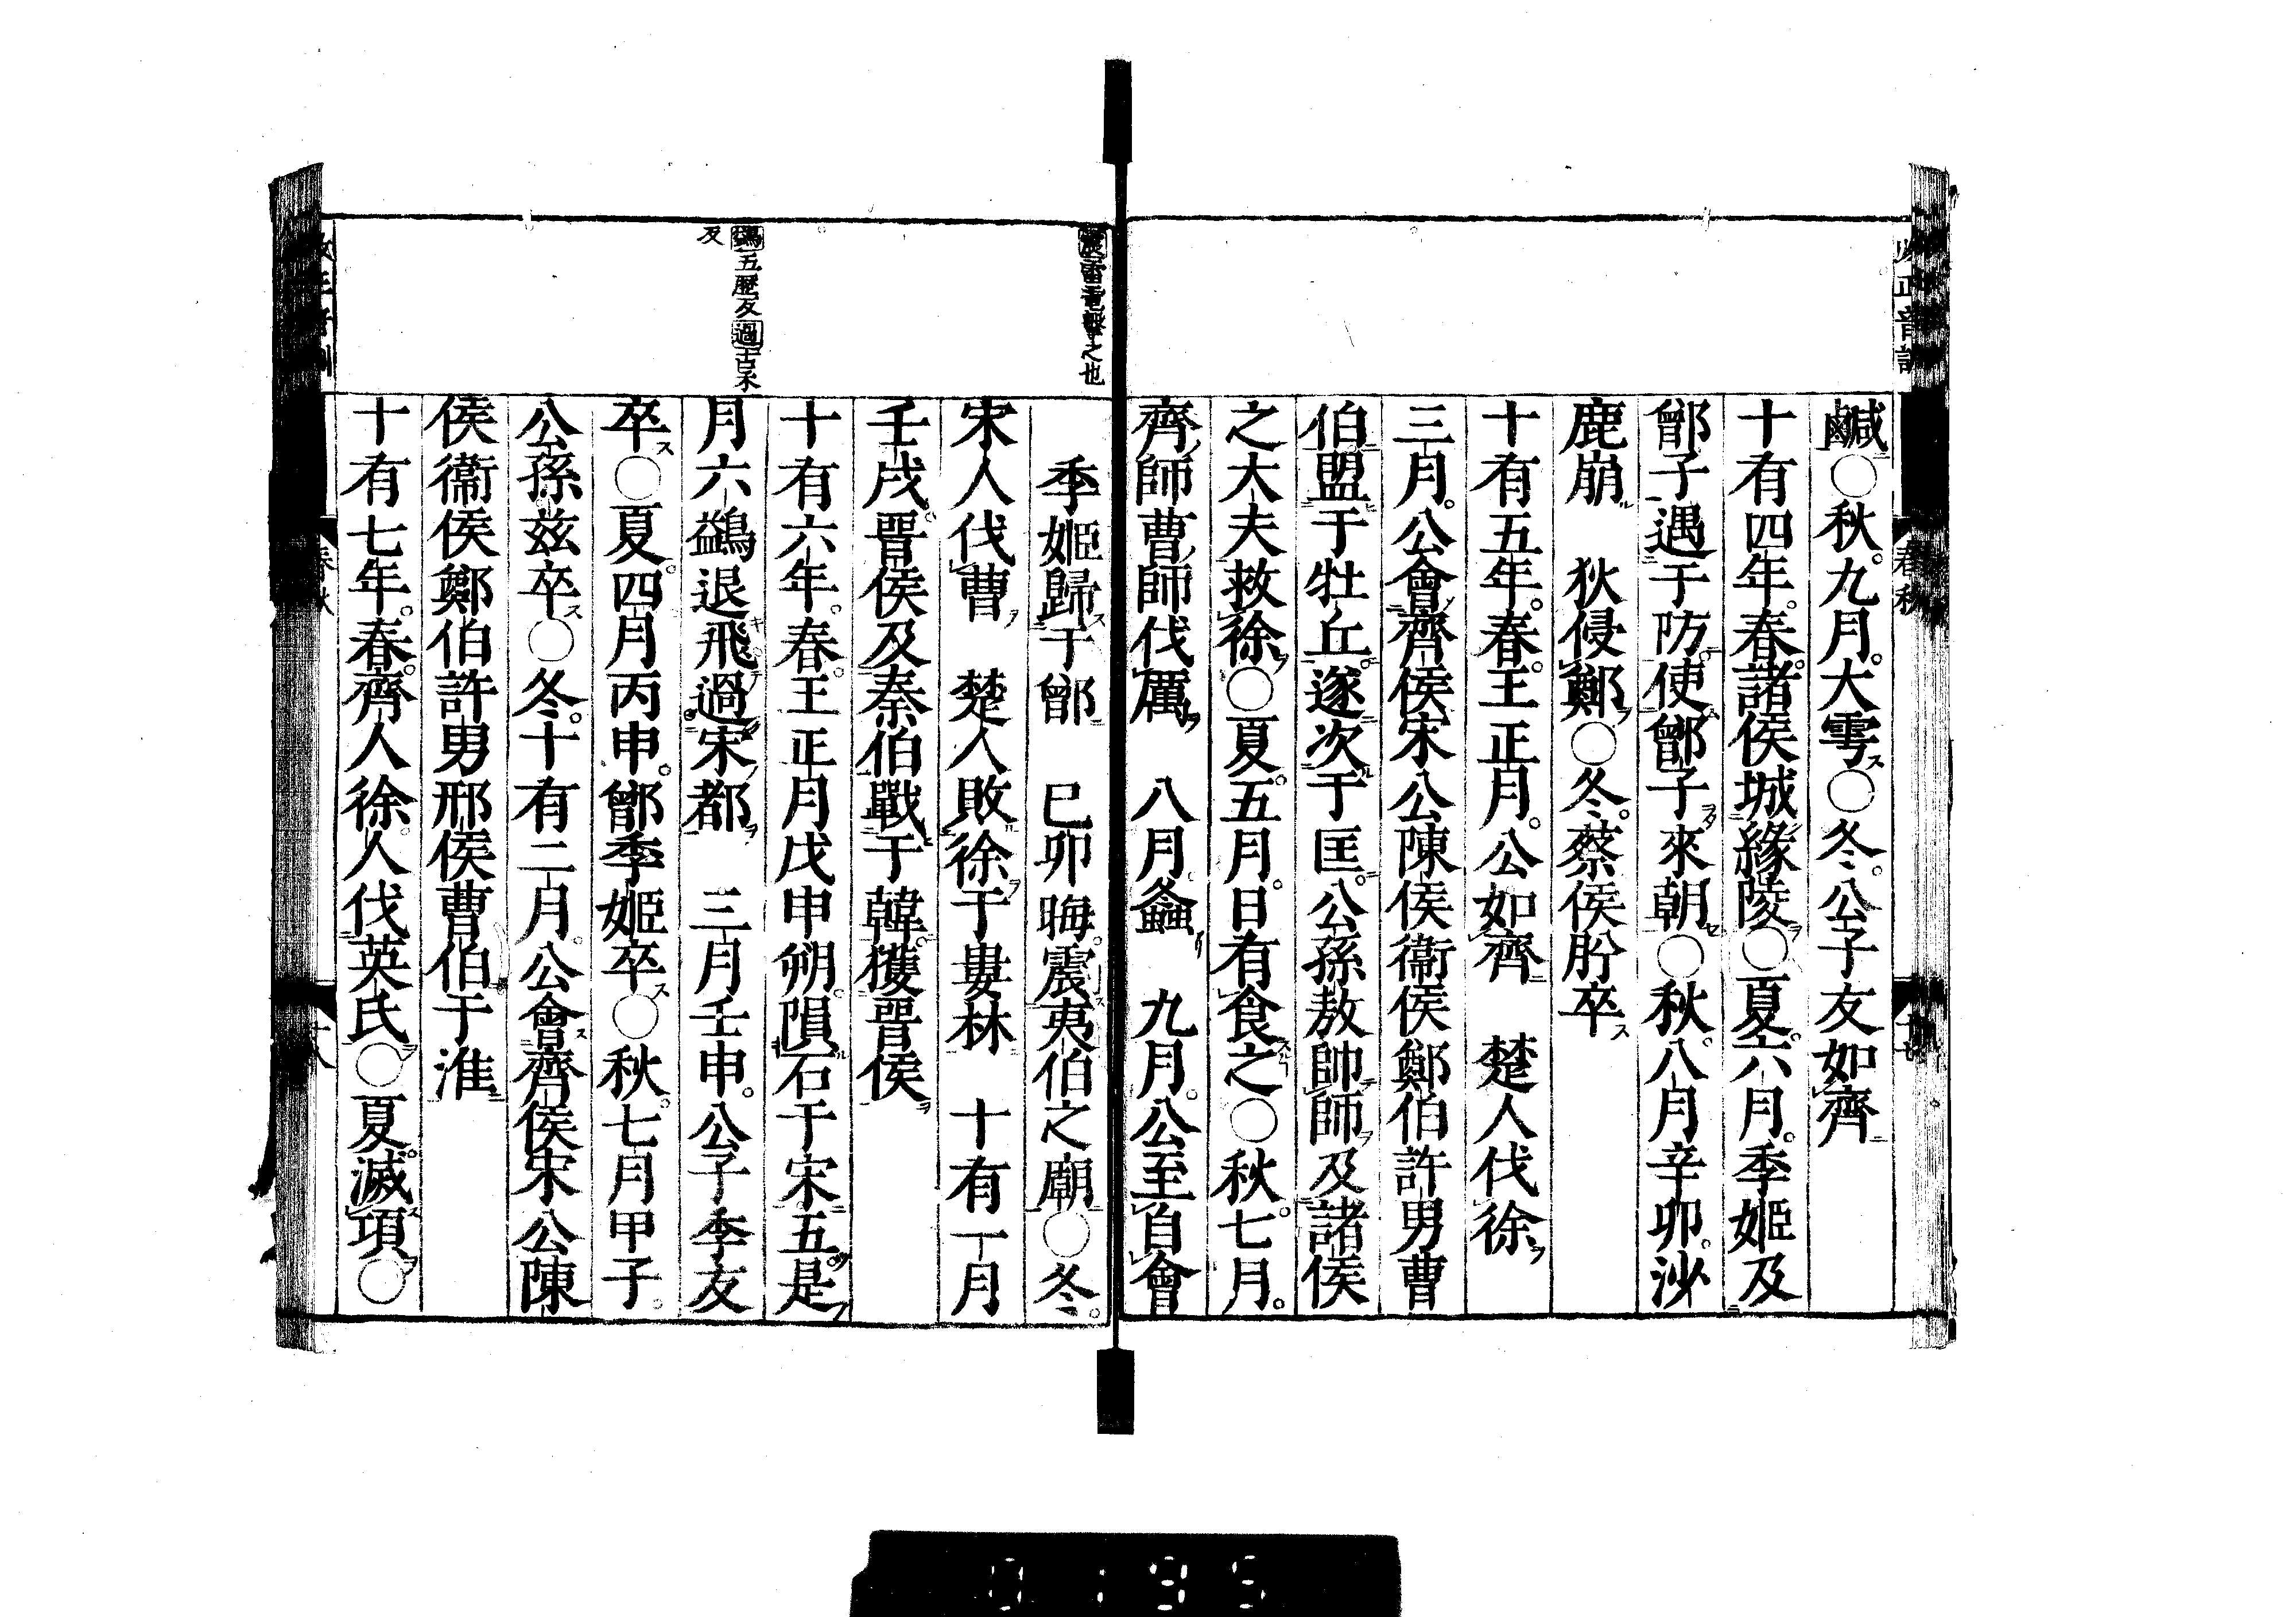 鹹○秋九月大雩○冬公子友如齊
十有四年春諸侯城緣陵○夏六月季姬及
鄫子遇于防使鄫子來朝○秋八月辛卯沙
鹿崩　狄侵鄭○冬蔡侯肸卒
十有五年春王正月公如齊　楚人伐徐
三月公會齊侯宋公陳侯衞侯鄭伯許男曹
伯盟于牡丘遂次于匡公孫敖帥師及諸侯
之大夫救徐○夏五月日有食之○秋七月
齊師曹師伐厲　八月螽　九月公至自會
震雷電擊之也
季姬歸于鄫　已卯晦震夷伯之廟○冬
宋人伐曹　楚人敗徐于婁林　十有一月
壬戌晉侯及秦伯戰于韓獲晉侯
十有六年春王正月戊申朔隕石于宋五是
鷁五歷反過古禾
反
月六鷁退飛過宋都　三月壬申公子季友
卒○夏四月丙申鄫季姬卒○秋七月甲子
公孫茲卒○冬十有二月公會齊侯宋公陳
侯衞侯鄭伯許男邢侯曹伯于淮
十有七年春齊人徐人伐英氏○夏滅項○
春秋
0195